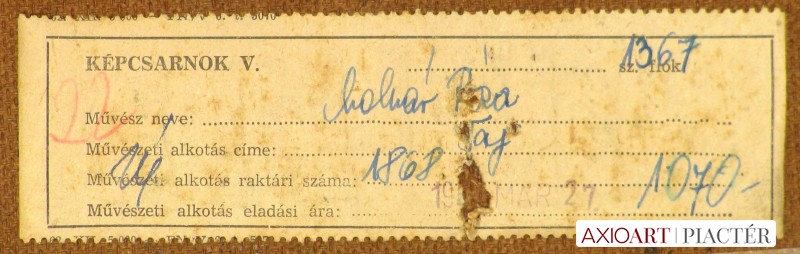 KÉPCSARNOK V.
1367 sz. fiók
22
Művész neve: Molnár Róza
Művészeti alkotás címe: Táj
Művészeti alkotás raktári száma: 1868
MÁR 27
Művészeti alkotás eladási ára: 1070-
AXIOART | PIACTÉR